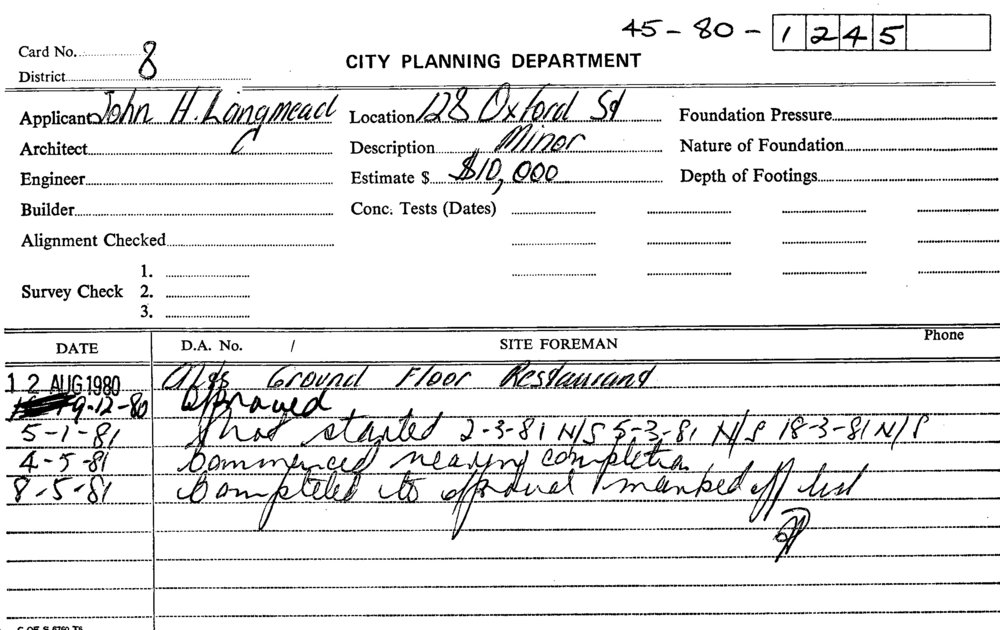 45 - 80 - 1245
Card No. 8
District
CITY PLANNING DEPARTMENT
Applicant John H. Langmead Location 128 Oxford St Foundation Pressure
Architect Description Minor Nature of Foundation
Engineer Estimate $ $10,000 Depth of Footings
Builder Conc. Tests (Dates)
Alignment Checked
1.
Survey Check 2.
3.
DATE D.A. No. / SITE FOREMAN Phone
12 AUG 1980 Alts Ground Floor Restaurant
9-12-80 approved
5-1-81 not started 2-3-81 N/S 5-3-81 N/S 18-3-81 N/S
4-5-81 Commenced nearing completion
8-5-81 Completed to approval marked off list
C OF S 6760 T6